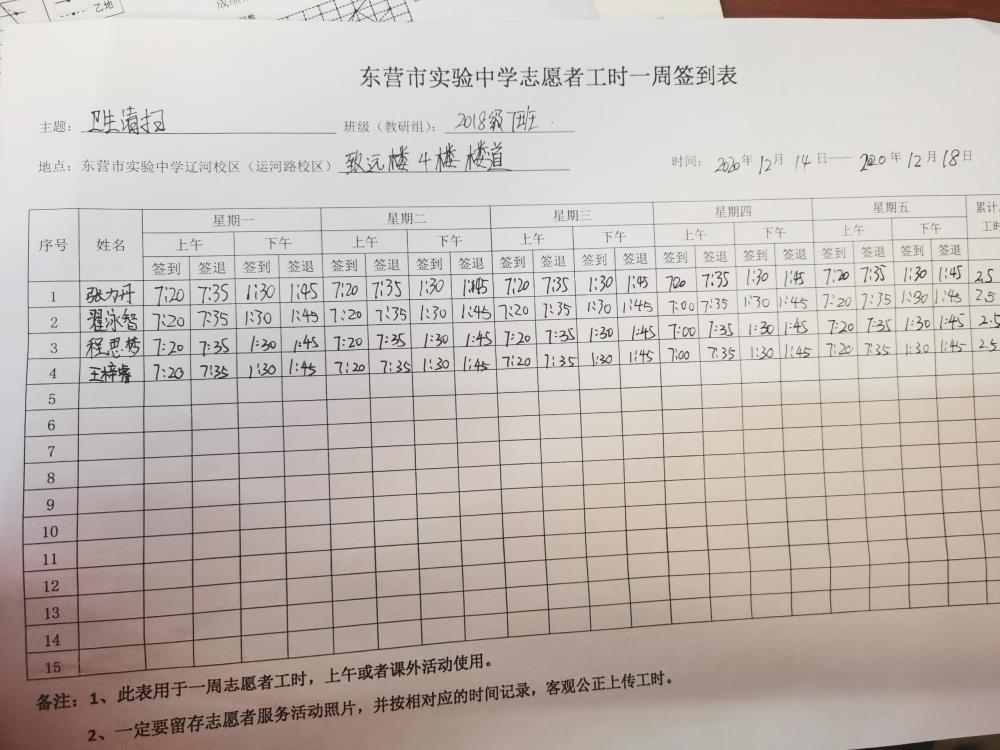 乙地
东营市实验中学志愿者工时一周签到表
主题：卫生清扫 班级（教研组）：2018级7班
地点：东营市实验中学辽河校区（运河路校区）致远楼4楼楼道 时间：2020年12月14日——2020年12月18日
序号 姓名 星期一 星期二 星期三 星期四 星期五 累计
上午 下午 上午 下午 上午 下午 上午 下午 上午 下午 工时
签到 签退 签到 签退 签到 签退 签到 签退 签到 签退 签到 签退 签到 签退 签到 签退 签到 签退 签到 签退
1 张力丹 7:20 7:35 1:30 1:45 7:20 7:35 1:30 1:45 7:20 7:35 1:30 1:45 7:20 7:35 1:30 1:45 7:20 7:35 1:30 1:45 2.5
2 翟泳智 7:20 7:35 1:30 1:45 7:20 7:35 1:30 1:45 7:20 7:35 1:30 1:45 7:00 7:35 1:30 1:45 7:20 7:35 1:30 1:45 2.5
3 程思梦 7:20 7:35 1:30 1:45 7:20 7:35 1:30 1:45 7:20 7:35 1:30 1:45 7:00 7:35 1:30 1:45 7:20 7:35 1:30 1:45 2.5
4 王梓睿 7:20 7:35 1:30 1:45 7:20 7:35 1:30 1:45 7:20 7:35 1:30 1:45 7:00 7:35 1:30 1:45 7:20 7:35 1:30 1:45 2.5
5
6
7
8
9
10
11
12
13
14
15
备注：1、此表用于一周志愿者工时，上午或者课外活动使用。
2、一定要留存志愿者服务活动照片，并按相对应的时间记录，客观公正上传工时。